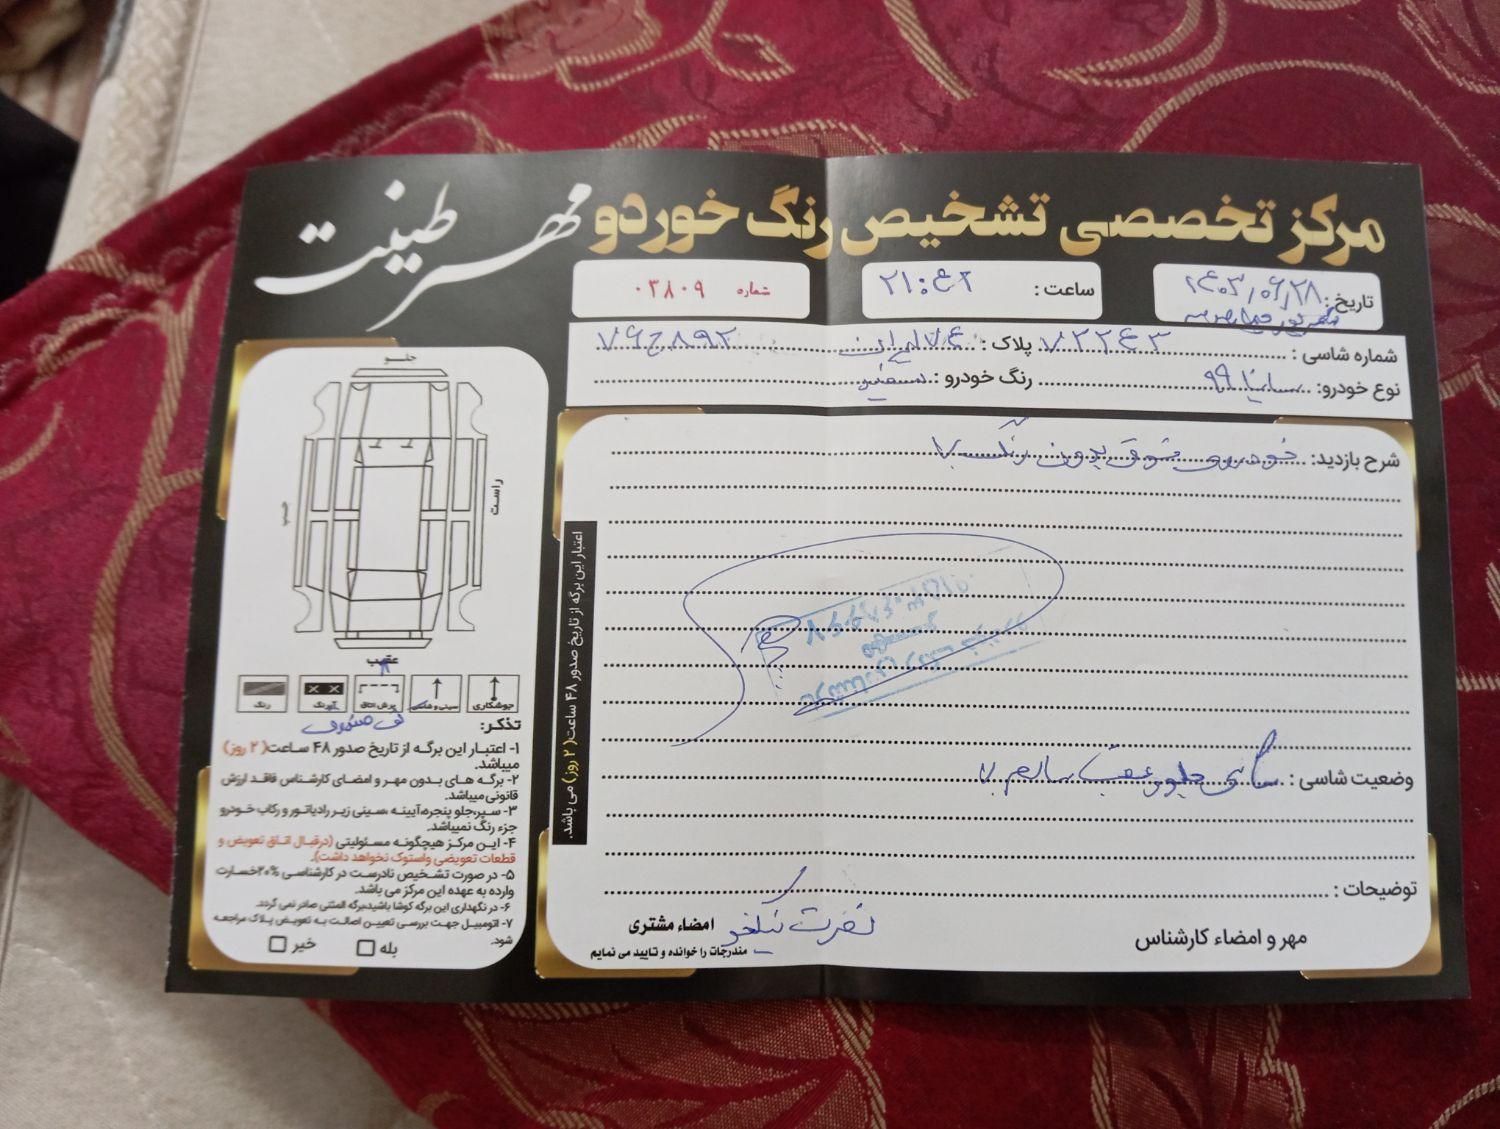 مرکز تخصصی تشخیص رنگ خوردو مهر طینت
تاریخ: ۱۴۰۳/۰۶/۲۸
ساعت: ۲۱:۴۲
شماره ۰۳۸۰۹
شماره شاسی: ۷۲۲۴۳ پلاک: ایران ۷۶ج۸۹۲
نوع خودرو: ساینا ۹۹ رنگ خودرو: سفید
شرح بازدید: خودروی فوق بدون رنگ
وضعیت شاسی: شاسی جلو و عقب سالم
توضیحات:
مهر و امضاء کارشناس
امضاء مشتری
مندرجات را خوانده و تایید می نمایم
نصرت نیکخو
اعتبار این برگه از تاریخ صدور ۴۸ ساعت (۲ روز) می باشد.
جلو
راست
چپ
عقب
جوشکاری
سینی و شاسی
برش اتاق
آبرنگ
رنگ
کف صندوق
تذکر:
۱- اعتبار این برگه از تاریخ صدور ۴۸ ساعت( ۲ روز)
میباشد.
۲- برگه های بدون مهر و امضای کارشناس فاقد ارزش
قانونی میباشد.
۳- سپر،جلو پنجره،آیینه ،سینی زیر رادیاتور و رکاب خودرو
جزء رنگ نمیباشد.
۴- این مرکز هیچگونه مسئولیتی (درقبال اتاق تعویض و
قطعات تعویضی واستوک نخواهد داشت).
۵- در صورت تشخیص نادرست در کارشناسی ۲۰%خسارت
وارده به عهده این مرکز می باشد.
۶- در نگهداری این برگه کوشا باشید،برگه المثنی صادر نمی گردد.
۷- اتومبیل جهت بررسی تعیین اصالت به تعویض پلاک مراجعه
شود.
بله
خیر